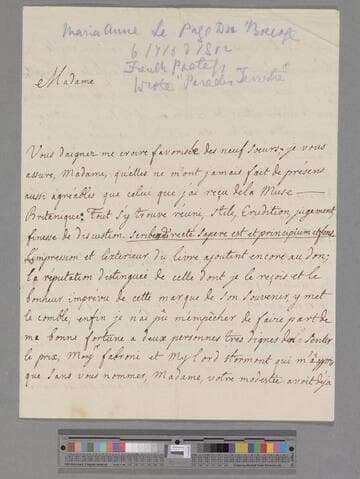 Maria Anne Le Page Du Bocage
6/1710 d 1802
French Poetess
Wrote "Paradis Terrestre"
Madame
Vous daignez me croire favorisée des neuf soeurs, je vous
assure, Madame, qu'elles ne m'ont jamais fait de présens
aussi agréables que celui que j'ai reçu de la Muse
Britanique. Tout s'y trouve réuni, stile, Erudition, jugement,
finesse de discution. scribendi recte sapere est et principium et fons
L'impression et l'exterieur du livre ajoutent encore au don;
la réputation distinguée de celle dont je le reçois et le
bonheur imprevu de cette marque de son souvenir, y met
le comble, enfin je n'ai pû m'empêcher de faire part de
ma bonne fortune a deux personnes très dignes d'en sentir
le prix, Monsr fabroni et My Lord Stormont qui m'a appris
que sans vous nommer, Madame, votre modestie avoit déja